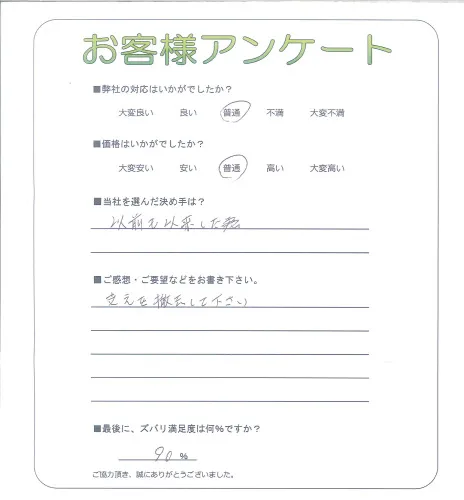 お客様アンケート
■弊社の対応はいかがでしたか？
大変良い 良い 普通 不満 大変不満
■価格はいかがでしたか？
大変安い 安い 普通 高い 大変高い
■当社を選んだ決め手は？
以前も以来した為
■ご感想・ご要望などをお書き下さい。
支えを撤去して下さい
■最後に、ズバリ満足度は何％ですか？
90 ％
ご協力頂き、誠にありがとうございました。